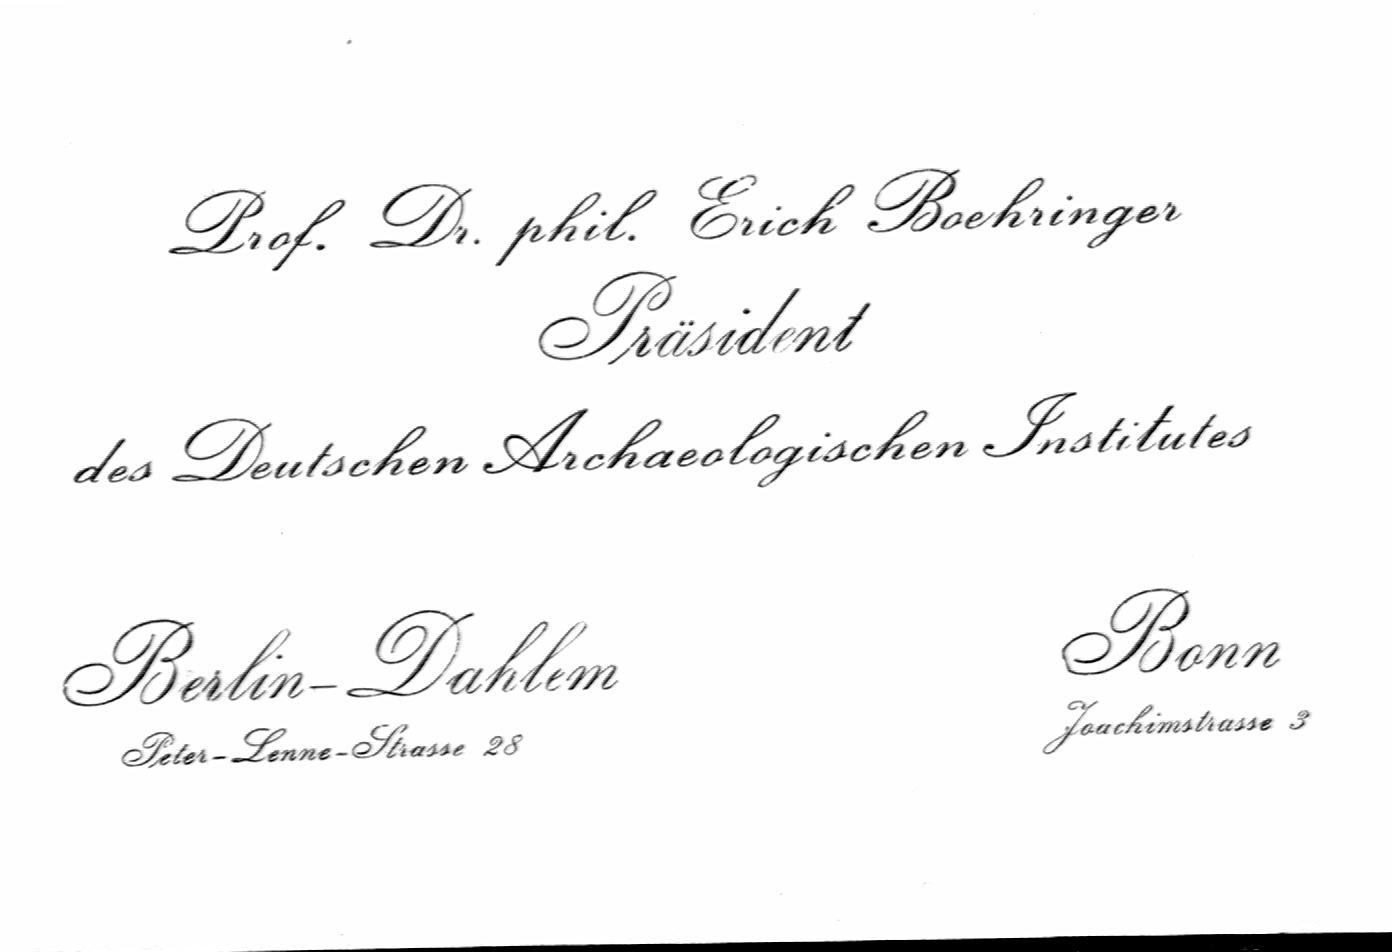 Prof. Dr. phil. Erich Boehringer
Präsident
des Deutschen Archaeologischen Institutes
Berlin-Dahlem
Peter-Lenne-Strasse 28
Bonn
Joachimstrasse 3